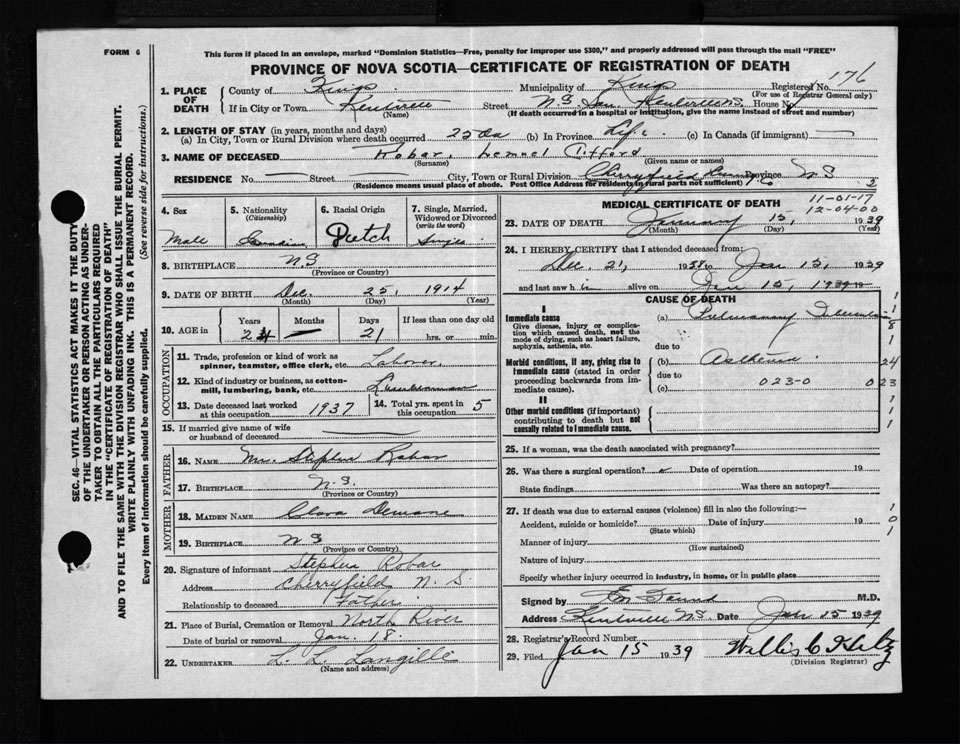 FORM 6
This form if placed in an envelope, marked "Dominion Statistics—Free, penalty for improper use $300," and properly addressed will pass through the mail "FREE"
PROVINCE OF NOVA SCOTIA—CERTIFICATE OF REGISTRATION OF DEATH
SEC. 46—VITAL STATISTICS ACT MAKES IT THE DUTY
OF THE UNDERTAKER OR PERSON ACTING AS UNDER-
TAKER TO OBTAIN ALL THE PARTICULARS REQUIRED
IN THE "CERTIFICATE OF REGISTRATION OF DEATH"
AND TO FILE THE SAME WITH THE DIVISION REGISTRAR WHO SHALL ISSUE THE BURIAL PERMIT.
WRITE PLAINLY WITH UNFADING INK. THIS IS A PERMANENT RECORD.
Every item of information should be carefully supplied. (See reverse side for instructions.)
1. PLACE OF DEATH County of Kings Municipality of Kings Registered No. 176
(For use of Registrar General only)
If in City or Town Kentville Street N S House No.
(Name) (If death occurred in a hospital or institution, give the name instead of street and number)
2. LENGTH OF STAY (in years, months and days)
(a) In City, Town or Rural Division where death occurred 25 da (b) In Province Life (c) In Canada (if immigrant) —
3. NAME OF DECEASED Robar, Lemuel Clifford
(Surname) (Given name or names)
RESIDENCE No. — Street — City, Town or Rural Division Cherryfield N S 2
(Residence means usual place of abode. Post Office Address for residents in rural parts not sufficient)
4. Sex Male
5. Nationality (Citizenship) Canadian
6. Racial Origin Dutch
7. Single, Married, Widowed or Divorced (write the word) Single
8. BIRTHPLACE N.S
(Province or Country)
9. DATE OF BIRTH Dec. 25, 1914
(Month) (Day) (Year)
10. AGE in Years 24 Months — Days 21 If less than one day old hrs. or min.
OCCUPATION
11. Trade, profession or kind of work as spinner, teamster, office clerk, etc. Laborer
12. Kind of industry or business, as cotton-mill, lumbering, bank, etc. Lumberman
13. Date deceased last worked at this occupation 1937
14. Total yrs. spent in this occupation 5
15. If married give name of wife or husband of deceased —
FATHER
16. NAME Mr. Stephen Robar
17. BIRTHPLACE N.S.
(Province or Country)
MOTHER
18. MAIDEN NAME Clara
19. BIRTHPLACE N S
(Province or Country)
20. Signature of informant Stephen Robar
Address Cherryfield N. S.
Relationship to deceased Father
21. Place of Burial, Cremation or Removal North River
Date of burial or removal Jan. 18.
22. UNDERTAKER L. L. Langille
(Name and address)
MEDICAL CERTIFICATE OF DEATH
11-01-17
12-04-00
23. DATE OF DEATH January 15, 1939
(Month) (Day) (Year)
24. I HEREBY CERTIFY that I attended deceased from:
Dec. 21, 1938 to Jan 15, 1939
and last saw h im alive on Jan 15, 1939 19
CAUSE OF DEATH
I
Immediate cause
Give disease, injury or complication which caused death, not the mode of dying, such as heart failure, asphyxia, asthenia, etc.
(a) Pulmonary Tuberculosis
due to
Morbid conditions, if any, giving rise to immediate cause (stated in order proceeding backwards from immediate cause).
(b) Asthenia. 24
due to
(c) 023-0 023
II
Other morbid conditions (if important) contributing to death but not causally related to immediate cause.
25. If a woman, was the death associated with pregnancy?
26. Was there a surgical operation? Date of operation 19
State findings Was there an autopsy?
27. If death was due to external causes (violence) fill in also the following:—
Accident, suicide or homicide? Date of injury 19
(State which)
Manner of injury
(How sustained)
Nature of injury
Specify whether injury occurred in industry, in home, or in public place
Signed by M.D.
Address Kentville N.S. Date Jan 15 1939
28. Registrar's Record Number
29. Filed Jan 15 1939 Willis C
(Division Registrar)